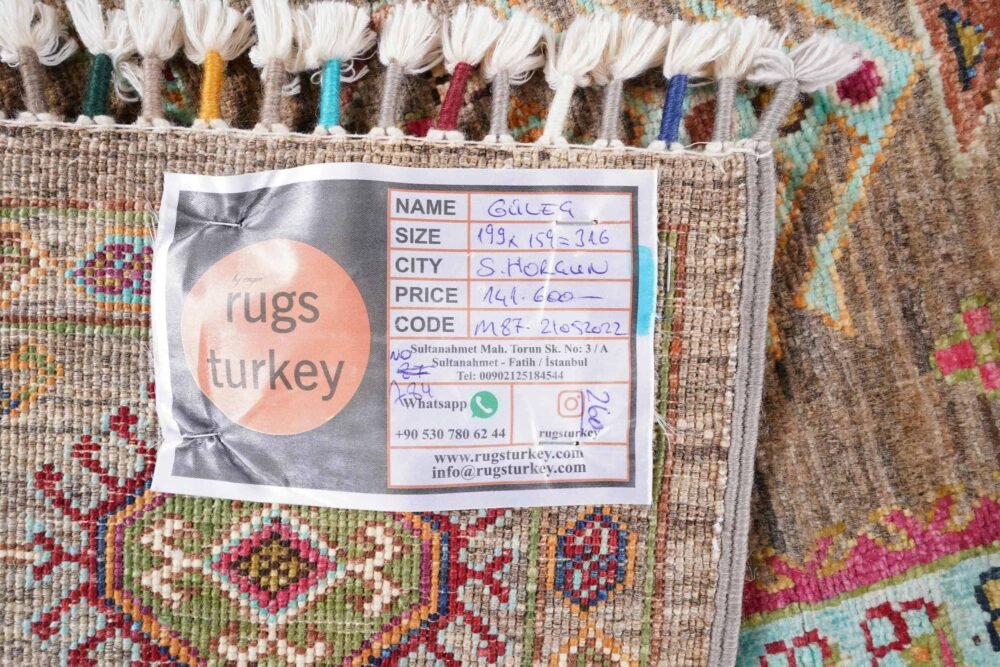 by engin
rugs
turkey
NAME GÜLEG
SIZE 199x159=316
CITY S.HORGUN
PRICE 141.600—
CODE M87-21052022
Sultanahmet Mah. Torun Sk. No: 3 / A
Sultanahmet - Fatih / İstanbul
Tel: 00902125184544
NO
784
Whatsapp
+90 530 780 62 44
260
rugsturkey
www.rugsturkey.com
info@rugsturkey.com